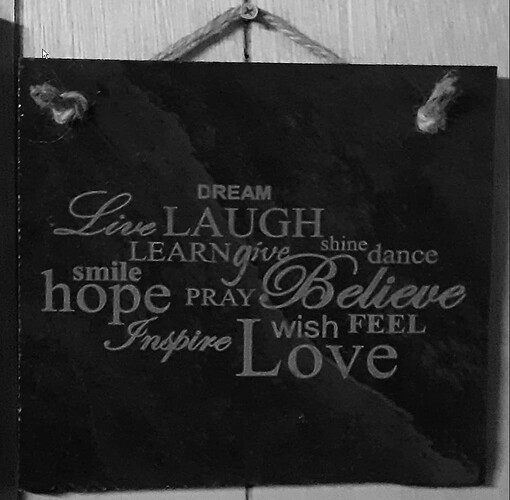 DREAM
Live LAUGH
LEARN give shine dance
smile
hope PRAY Believe
Inspire wish FEEL
Love